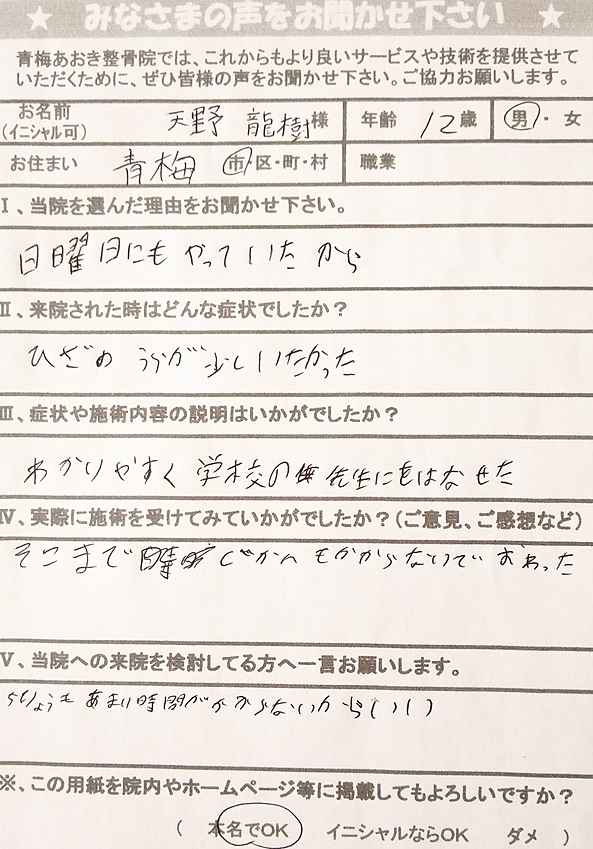 ★ みなさまの声をお聞かせ下さい ★
青梅あおき整骨院では、これからもより良いサービスや技術を提供させて
いただくために、ぜひ皆様の声をお聞かせ下さい。ご協力お願いします。
お名前
(イニシャル可) 天野 龍樹様 年齢 12歳 男・女
お住まい 青梅 市・区・町・村 職業
Ⅰ、当院を選んだ理由をお聞かせ下さい。
日曜日にもやっていたから
Ⅱ、来院された時はどんな症状でしたか？
ひざのうらが少しいたかった
Ⅲ、症状や施術内容の説明はいかがでしたか？
わかりやすく学校の先生にもはなせた
Ⅳ、実際に施術を受けてみていかがでしたか？(ご意見、ご感想など)
そこまでじかんもかからないでおわった
Ⅴ、当院への来院を検討してる方へ一言お願いします。
ちりょうもあまり時間がかからないからいい
※、この用紙を院内やホームページ等に掲載してもよろしいですか？
( 本名でOK イニシャルならOK ダメ )